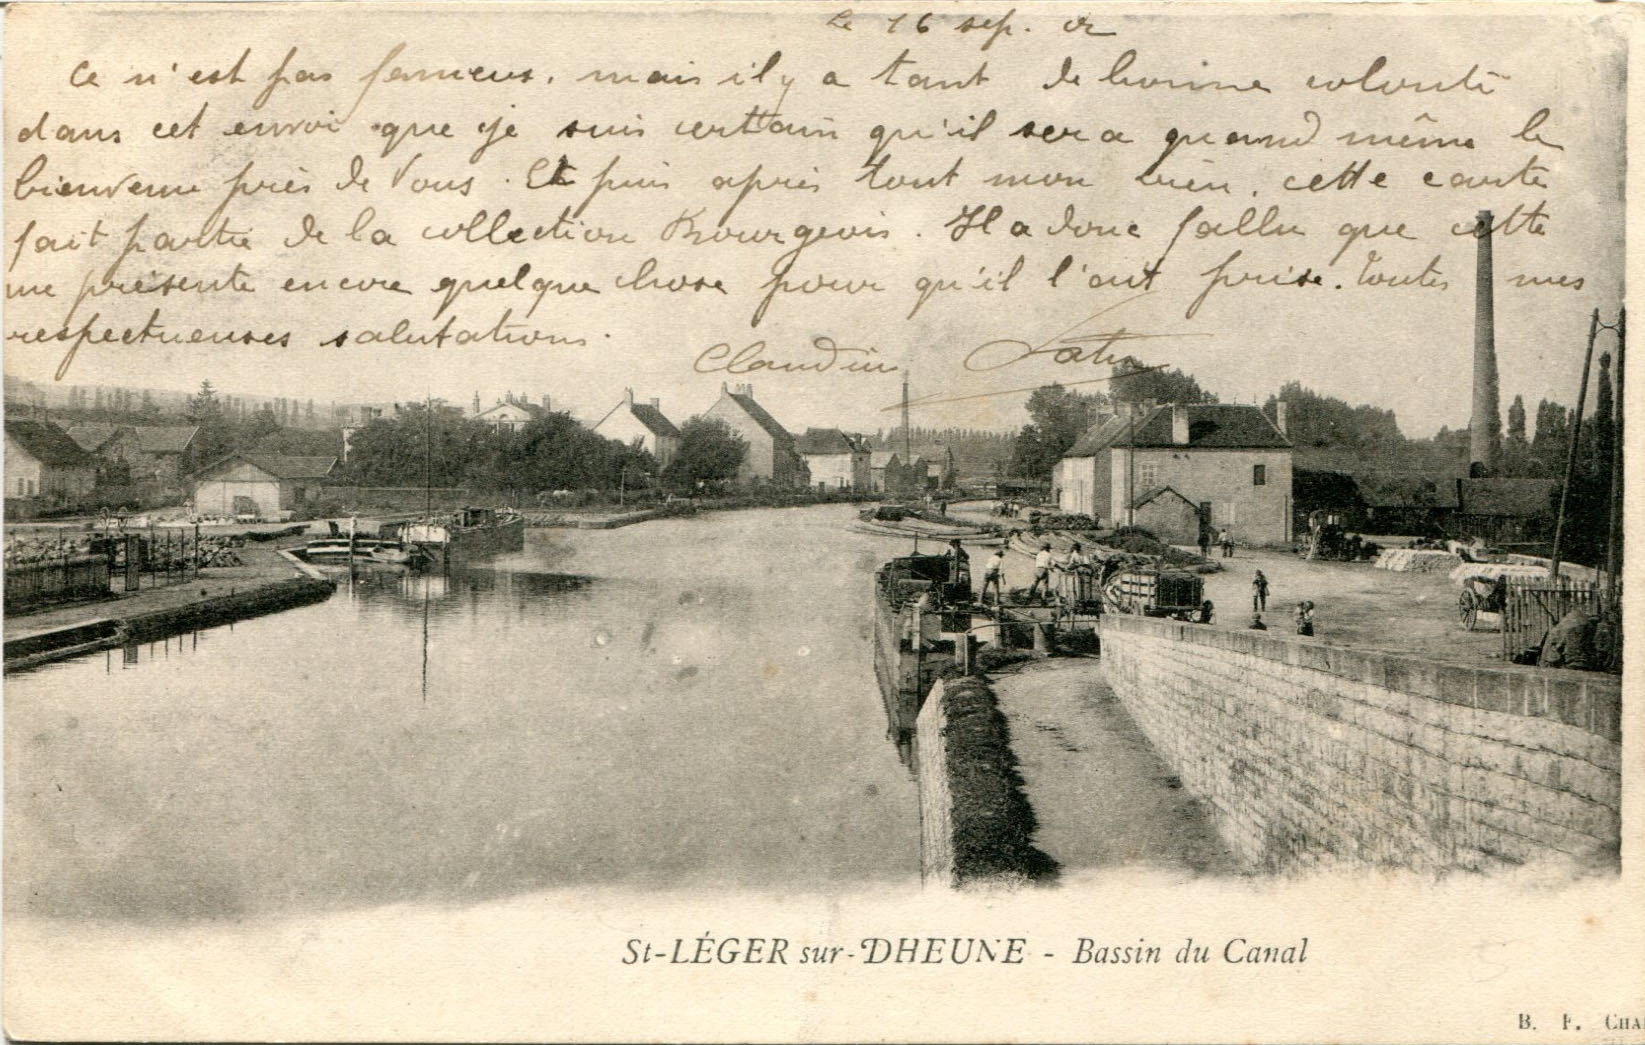 Le 16 sep. 02
Ce n'est pas fameux. mais il y a tant de bonne volonté
dans cet envoi que je suis certain qu'il sera quand même le
bienvenu près de Vous. Et puis après tout mon vieu, cette carte
fait partie de la collection Bourgeois. Il a donc fallu que cette
me présente encore quelque chose pour qu'il l'ont prise. Toutes mes
respectueuses salutations.
Claudin
St-LÉGER sur-DHEUNE - Bassin du Canal
B. F. CHA